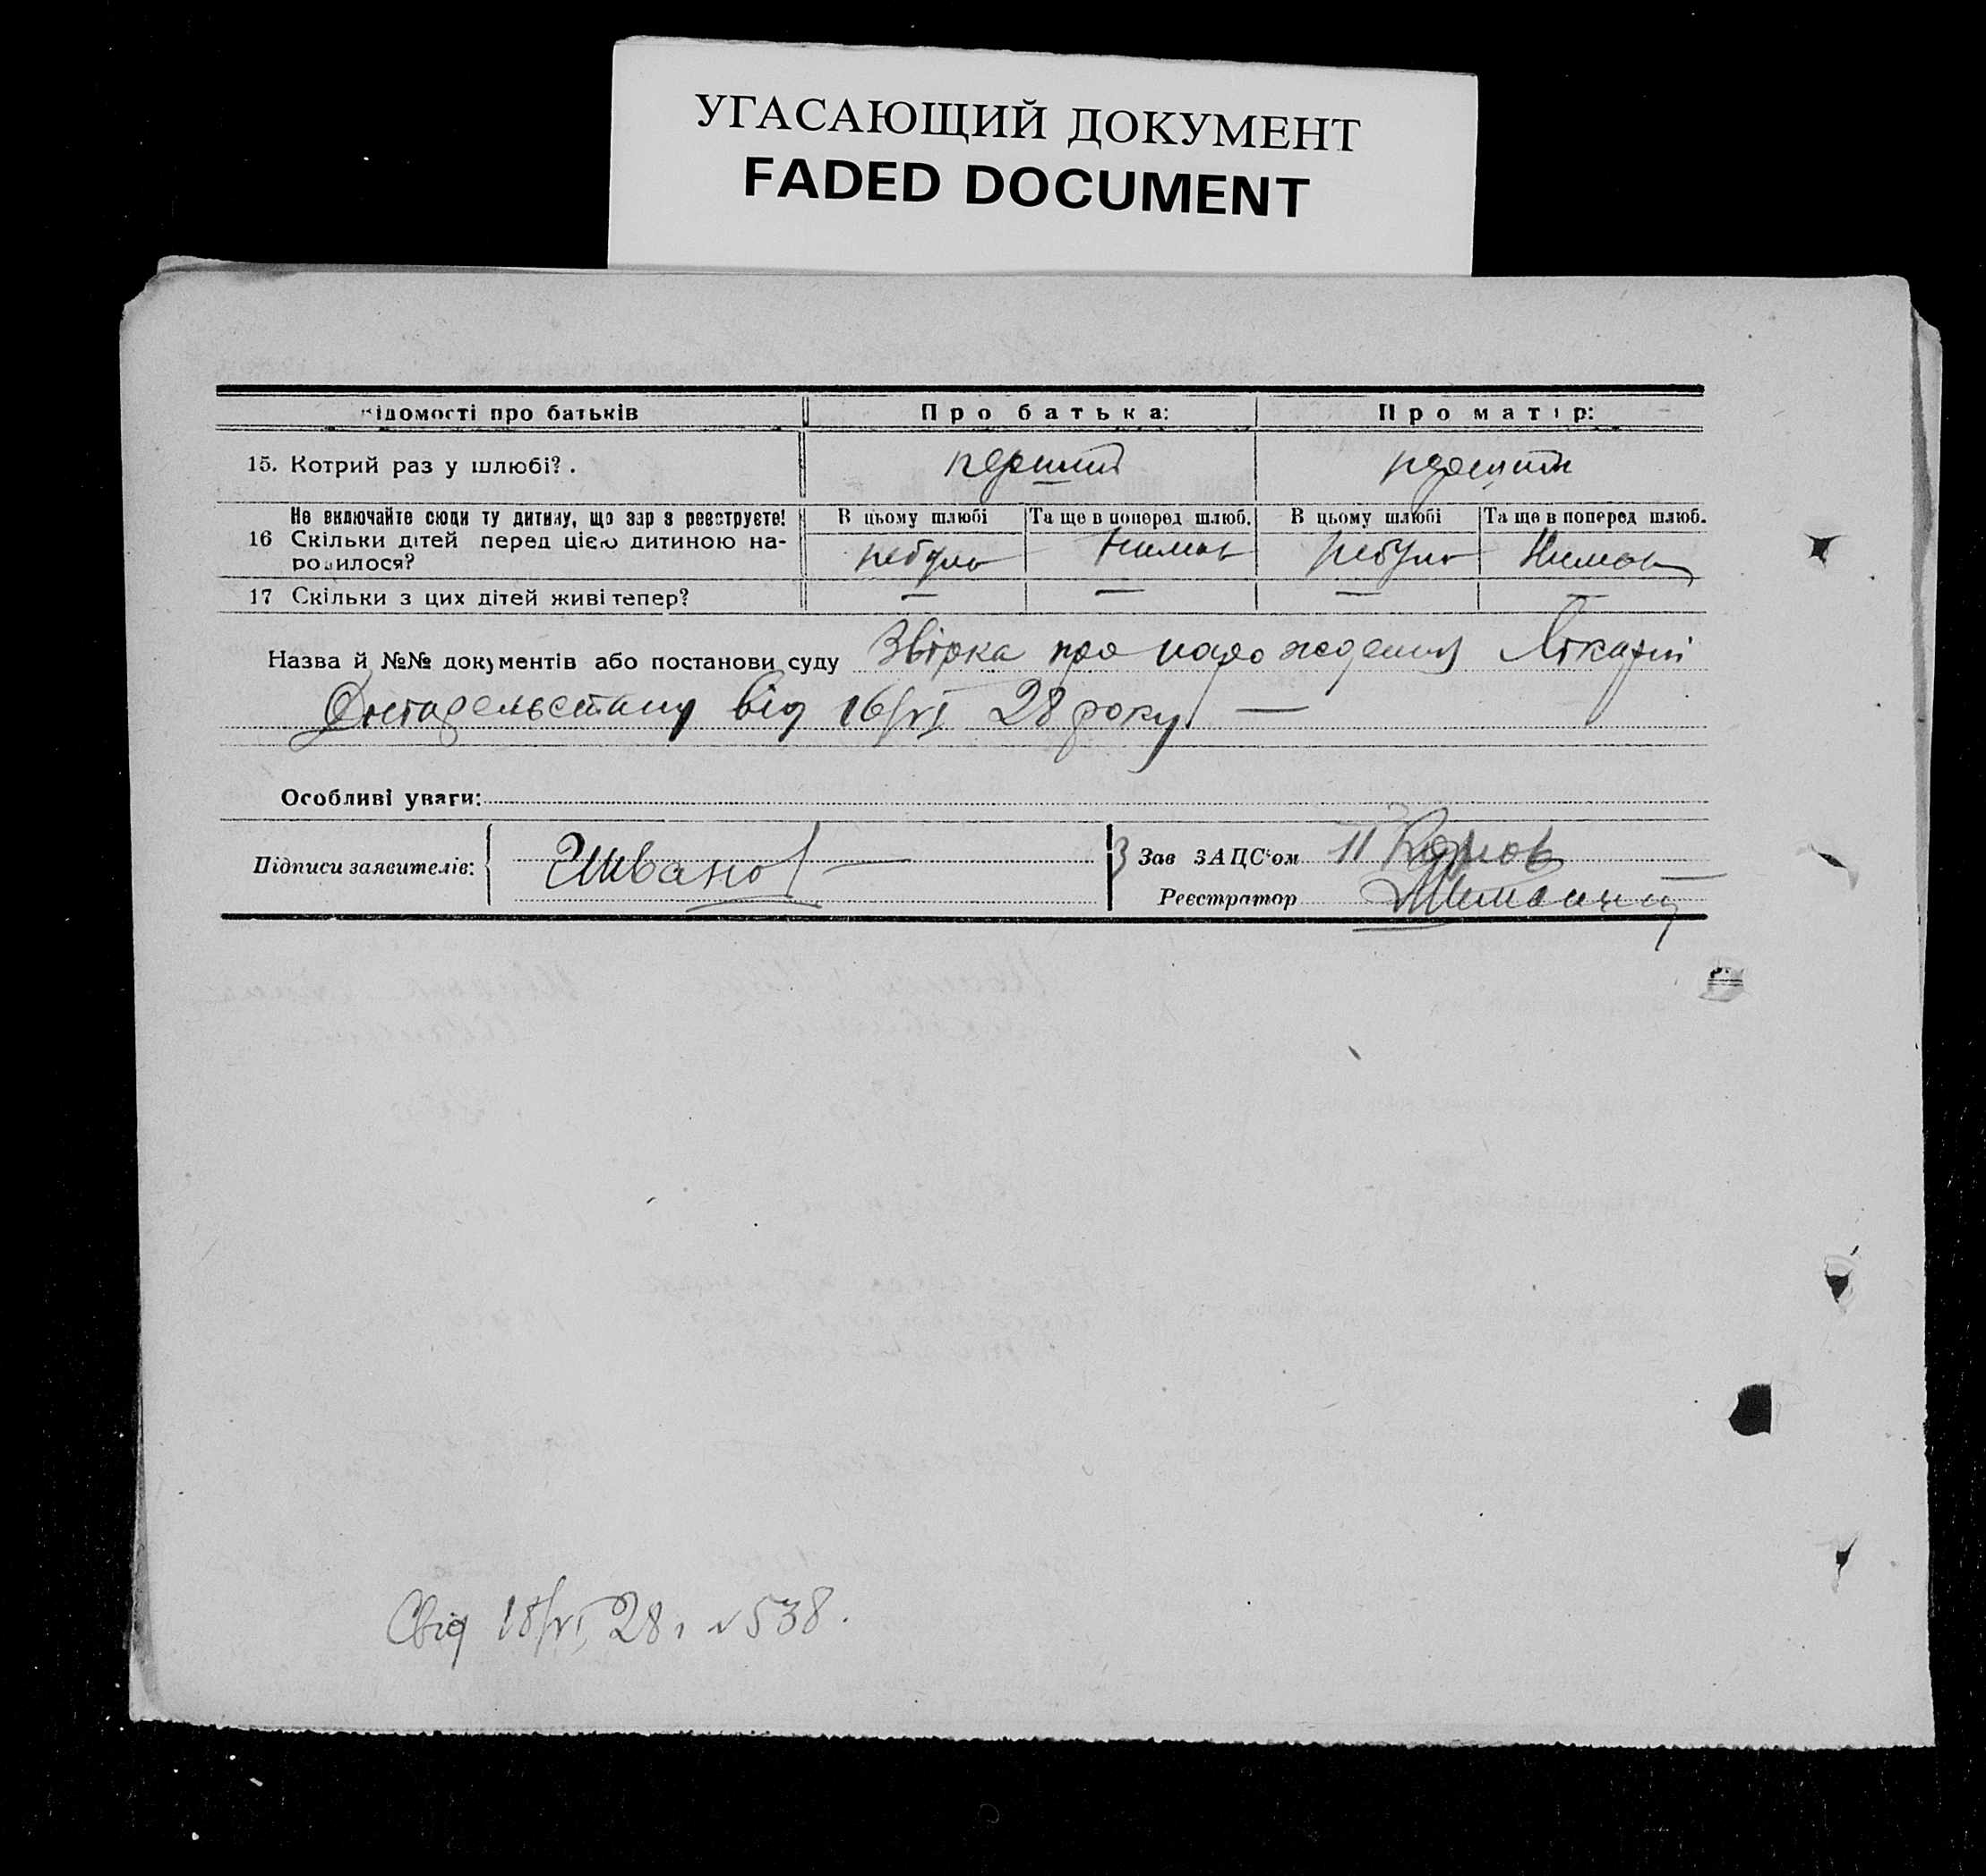 УГАСАЮЩИЙ ДОКУМЕНТ
FADED DOCUMENT
відомості про батьків Про батька: Про матір:
15. Котрий раз у шлюбі?. перший перший
Не включайте сюди ту дитину, що зар з реєструєте! В цьому шлюбі Та ще в поперед шлюб. В цьому шлюбі Та ще в поперед шлюб.
16 Скільки дітей перед цією дитиною на-
родилося? небуло Нимає небуло Нимає
17 Скільки з цих дітей живі тепер? — — — —
Назва й №№ документів або постанови суду про Лікарні
від 16/VI 28 року —
Особливі уваги:
Підписи заявителів: Иванов Зав ЗАЦС'ом
Реєстратор
Свід 18/VI 28 г № 538.